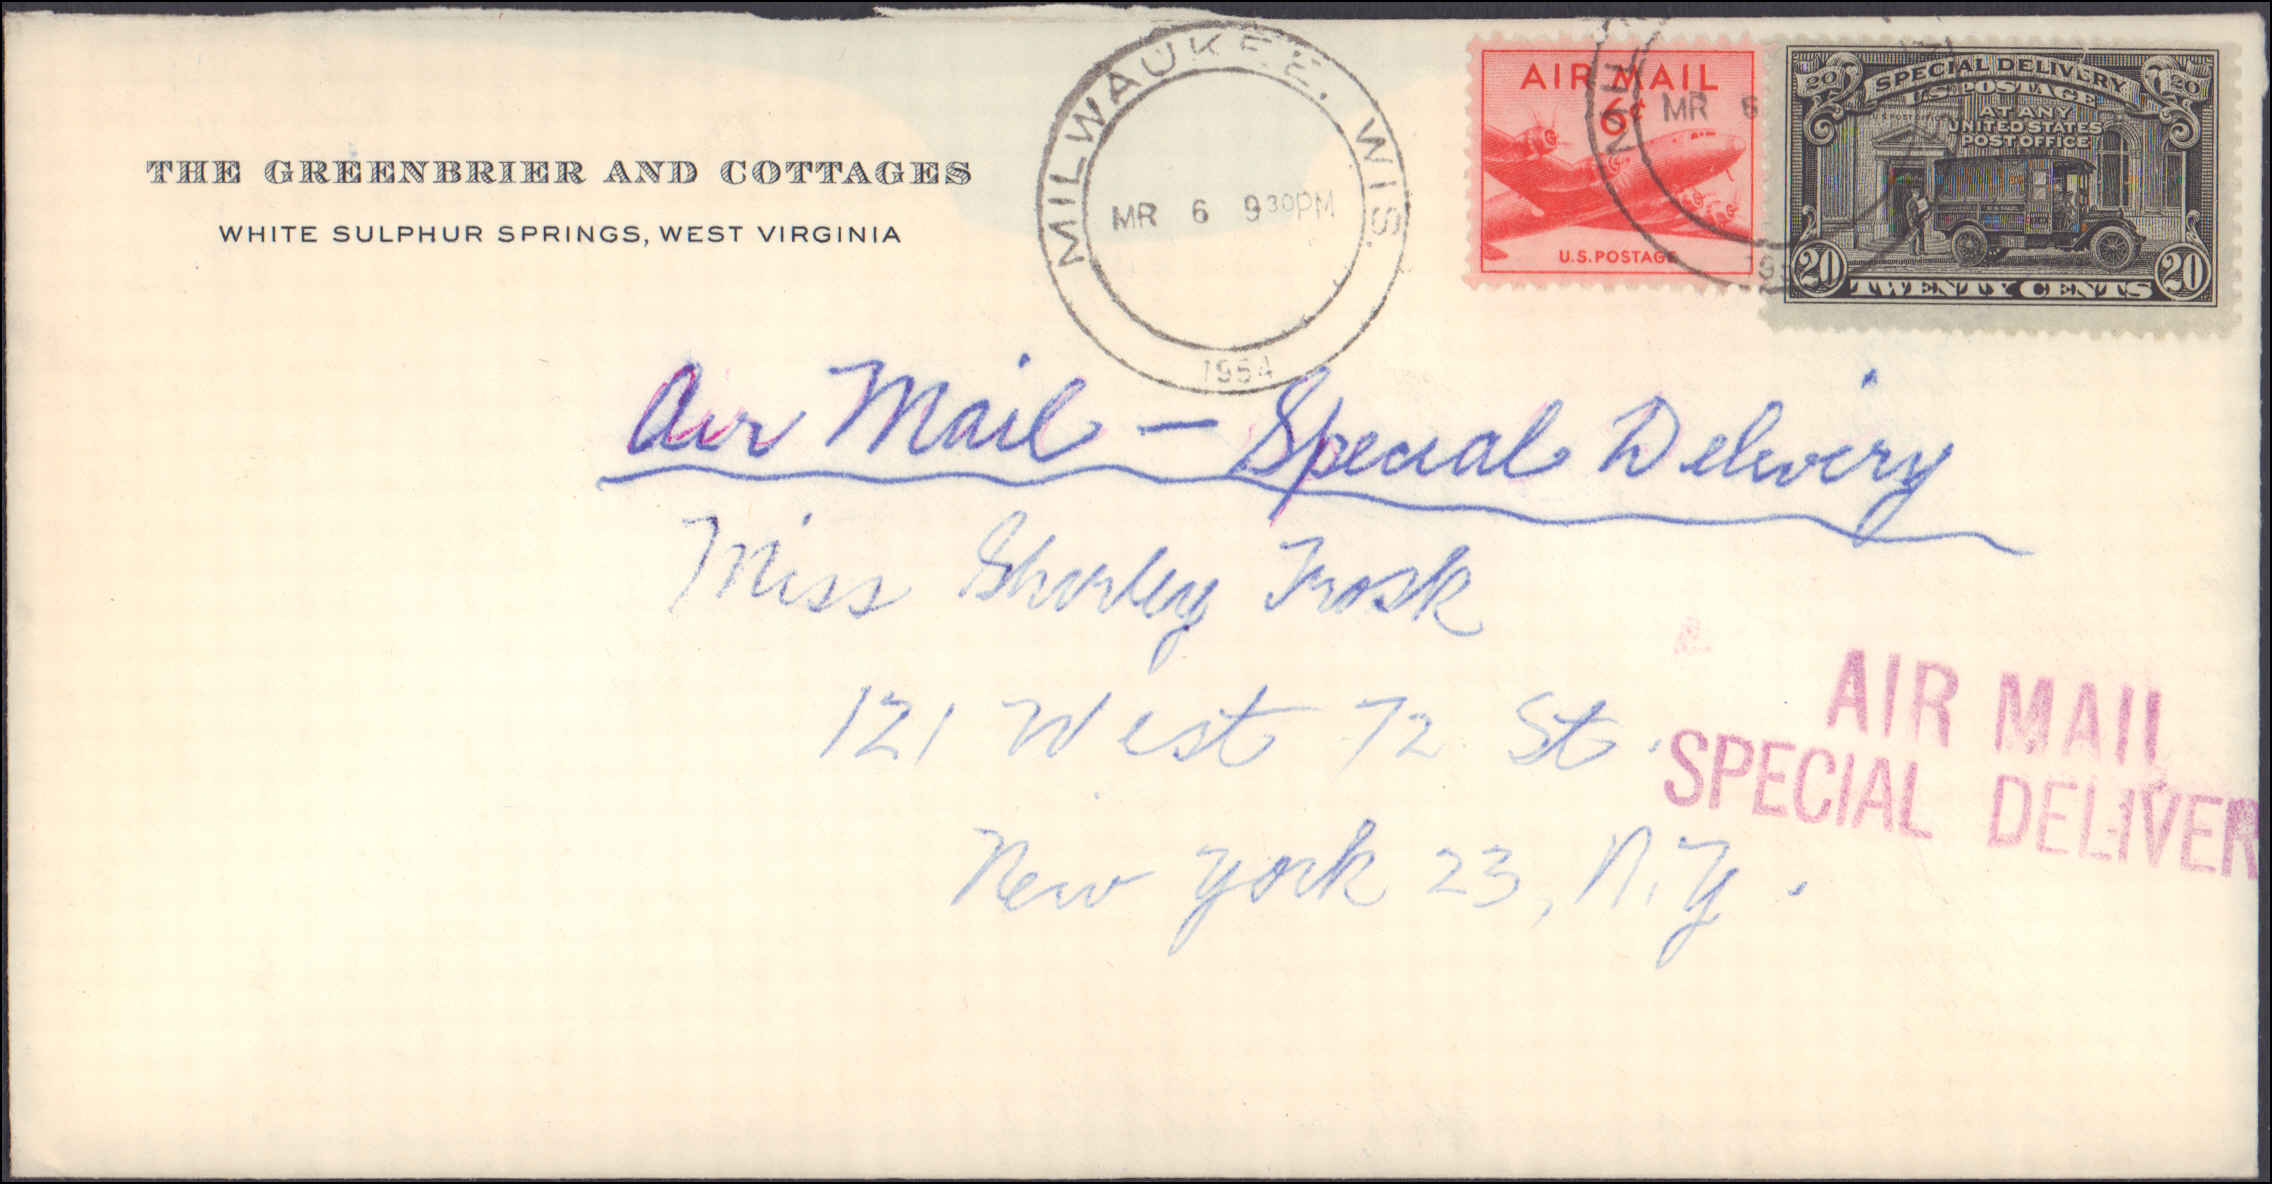 THE GREENBRIER AND COTTAGES
WHITE SULPHUR SPRINGS, WEST VIRGINIA
MILWAUKEE, WIS.
MR 6 9 30 PM
1954
AIR MAIL
6¢
U.S. POSTAGE
MR 6
20 SPECIAL DELIVERY 20
U.S. POSTAGE
AT ANY
UNITED STATES
POST OFFICE
20 TWENTY CENTS 20
Air Mail – Special Delivery
Miss Shorley Trosk
121 West 72 St.
New York 23, N.Y.
AIR MAIL
SPECIAL DELIVER